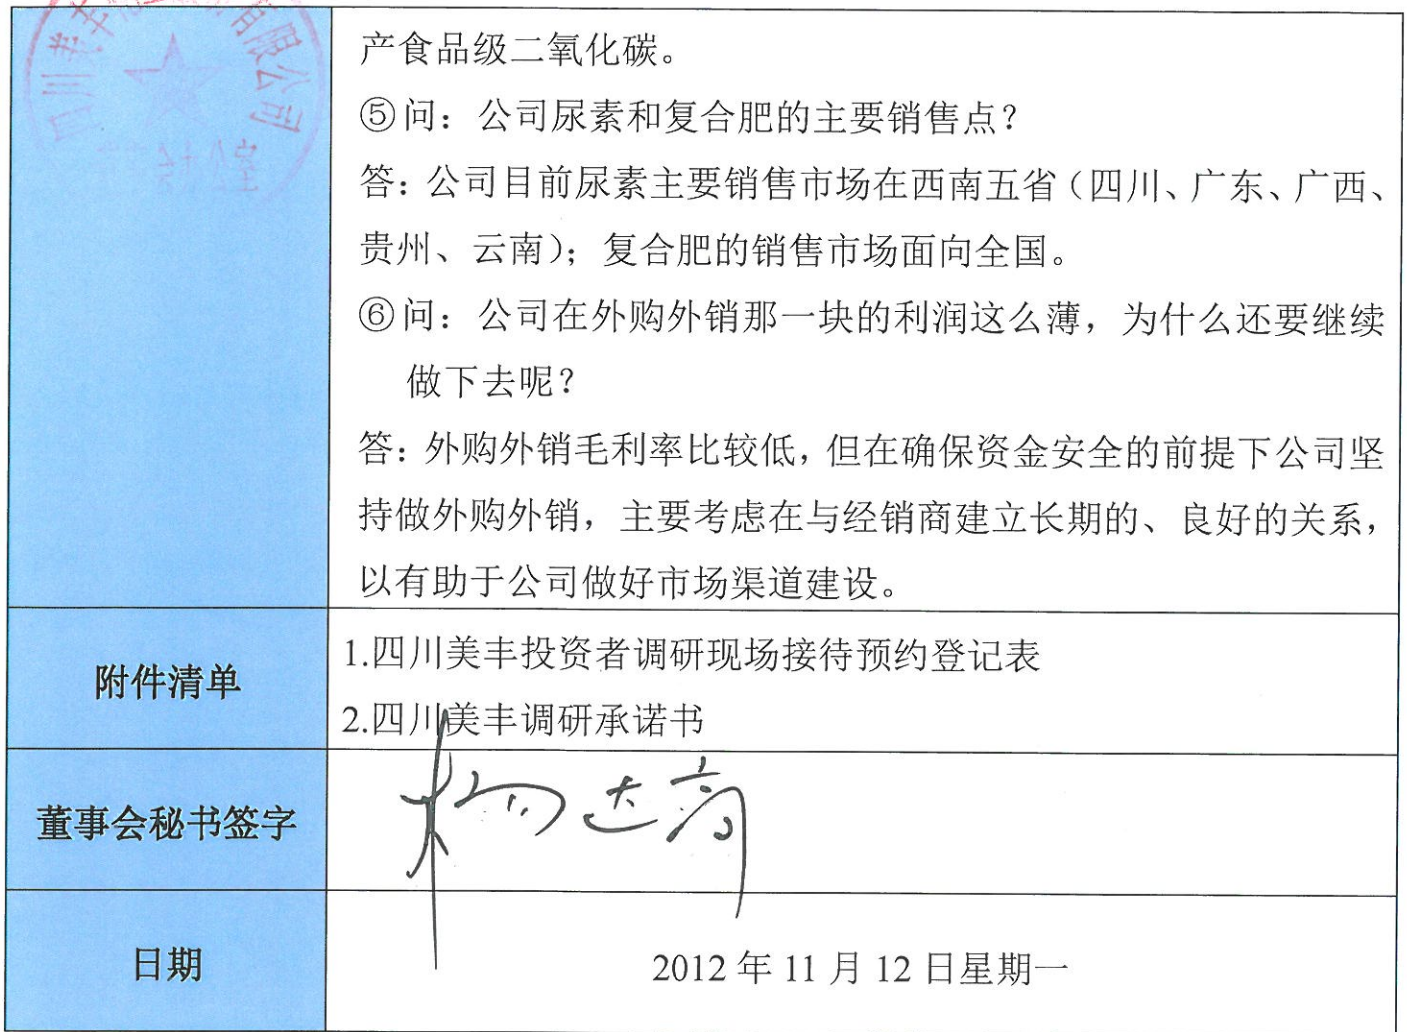 产食品级二氧化碳。
⑤问：公司尿素和复合肥的主要销售点？
答：公司目前尿素主要销售市场在西南五省（四川、广东、广西、
贵州、云南）；复合肥的销售市场面向全国。
⑥问：公司在外购外销那一块的利润这么薄，为什么还要继续
做下去呢？
答：外购外销毛利率比较低，但在确保资金安全的前提下公司坚
持做外购外销，主要考虑在与经销商建立长期的、良好的关系，
以有助于公司做好市场渠道建设。
附件清单
1.四川美丰投资者调研现场接待预约登记表
2.四川美丰调研承诺书
董事会秘书签字
杨达高
日期
2012年11月12日星期一
四川美丰
有限公司